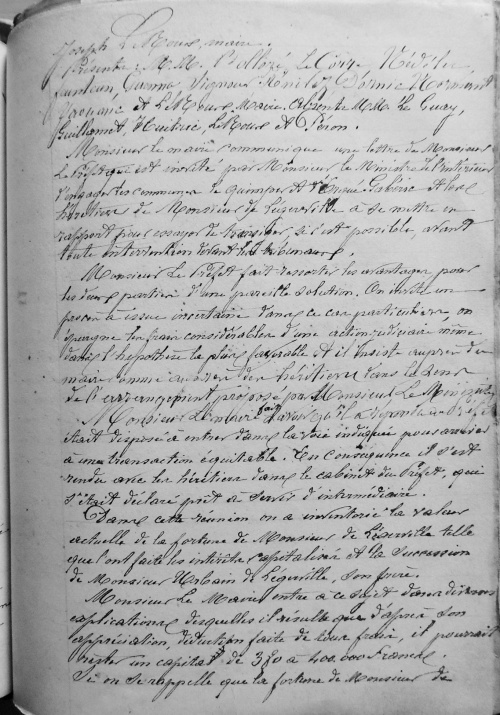 Joseph Le Roux, maire.
Présents: M.M. Bolloré, Nédélec
Signour Normant
et Le Roux, Maire. Absents M.M. Le Guay,
Guillamet, Huitric, Le Roux et
Monsieur le maire communique une lettre de Monsieur
Le Préfet qui est invité par Monsieur le Ministre de l'intérieur
d'engager les communes de quimper et Ergué Gabéric et les
héritiers de Monsieur de Légerville à se mettre en
rapport pour essayer de transiger, si c'est possible, avant
toute intervention devant les tribunaux.
Monsieur Le Préfet fait ressortir les avantages pour
les deux parties d'une pareille solution. On évite un
procès à issue incertaine dans ce cas particulier, on
épargne les frais considérables d'une action judiciaire même
dans l'hypothèse la plus favorable et il insiste auprès du
maire comme auprès des héritiers dans le sens
de l'arrangement proposé par Monsieur Le Ministre
Monsieur Le maire fait savoir qu'il a répondu
était disposé à entrer dans la voie indiquée pour arriver
à une transaction équitable. En conséquence il s'est
rendu avec les héritiers dans le cabinet du Préfet, qui
s'était déclaré prêt à servir d'intermédiaire.
Dans cette réunion on a inventorié la valeur
actuelle de la fortune de Monsieur de Légerville telle
que l'ont faite les intérêts capitalisés et la succession
de Monsieur Urbain de Légerville, son frère.
Monsieur Le Maire entre à ce sujet dans diverses
explications desquelles il résulte que d'après son
appréciation, déduction faite de tous frais, il pourrait
rester un capital de 350 à 400.000 Francs.
Si on se rappelle que la fortune de Monsieur de